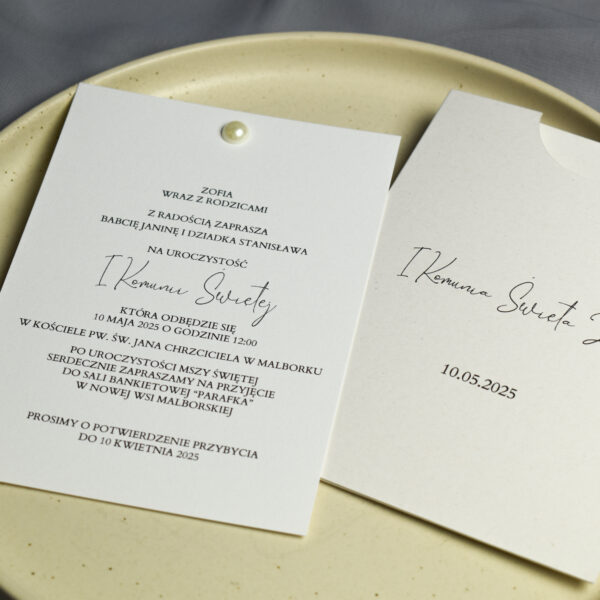 ZOFIA
WRAZ Z RODZICAMI
Z RADOŚCIĄ ZAPRASZA
BABCIĘ JANINĘ I DZIADKA STANISŁAWA
NA UROCZYSTOŚĆ
I Komunii Świętej
KTÓRA ODBĘDZIE SIĘ
10 MAJA 2025 O GODZINIE 12:00
W KOŚCIELE PW. ŚW. JANA CHRZCICIELA W MALBORKU
PO UROCZYSTOŚCI MSZY ŚWIĘTEJ
SERDECZNIE ZAPRASZAMY NA PRZYJĘCIE
DO SALI BANKIETOWEJ "PARAFKA"
W NOWEJ WSI MALBORSKIEJ
PROSIMY O POTWIERDZENIE PRZYBYCIA
DO 10 KWIETNIA 2025
I Komunia Święta
10.05.2025